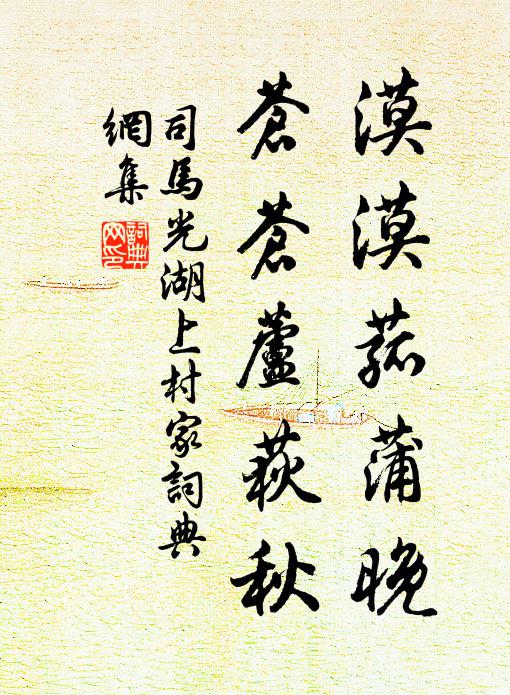 漠漠菰蒲晚
蒼蒼蘆荻秋
司馬光湖上村家詞典
網集
詞典
网印